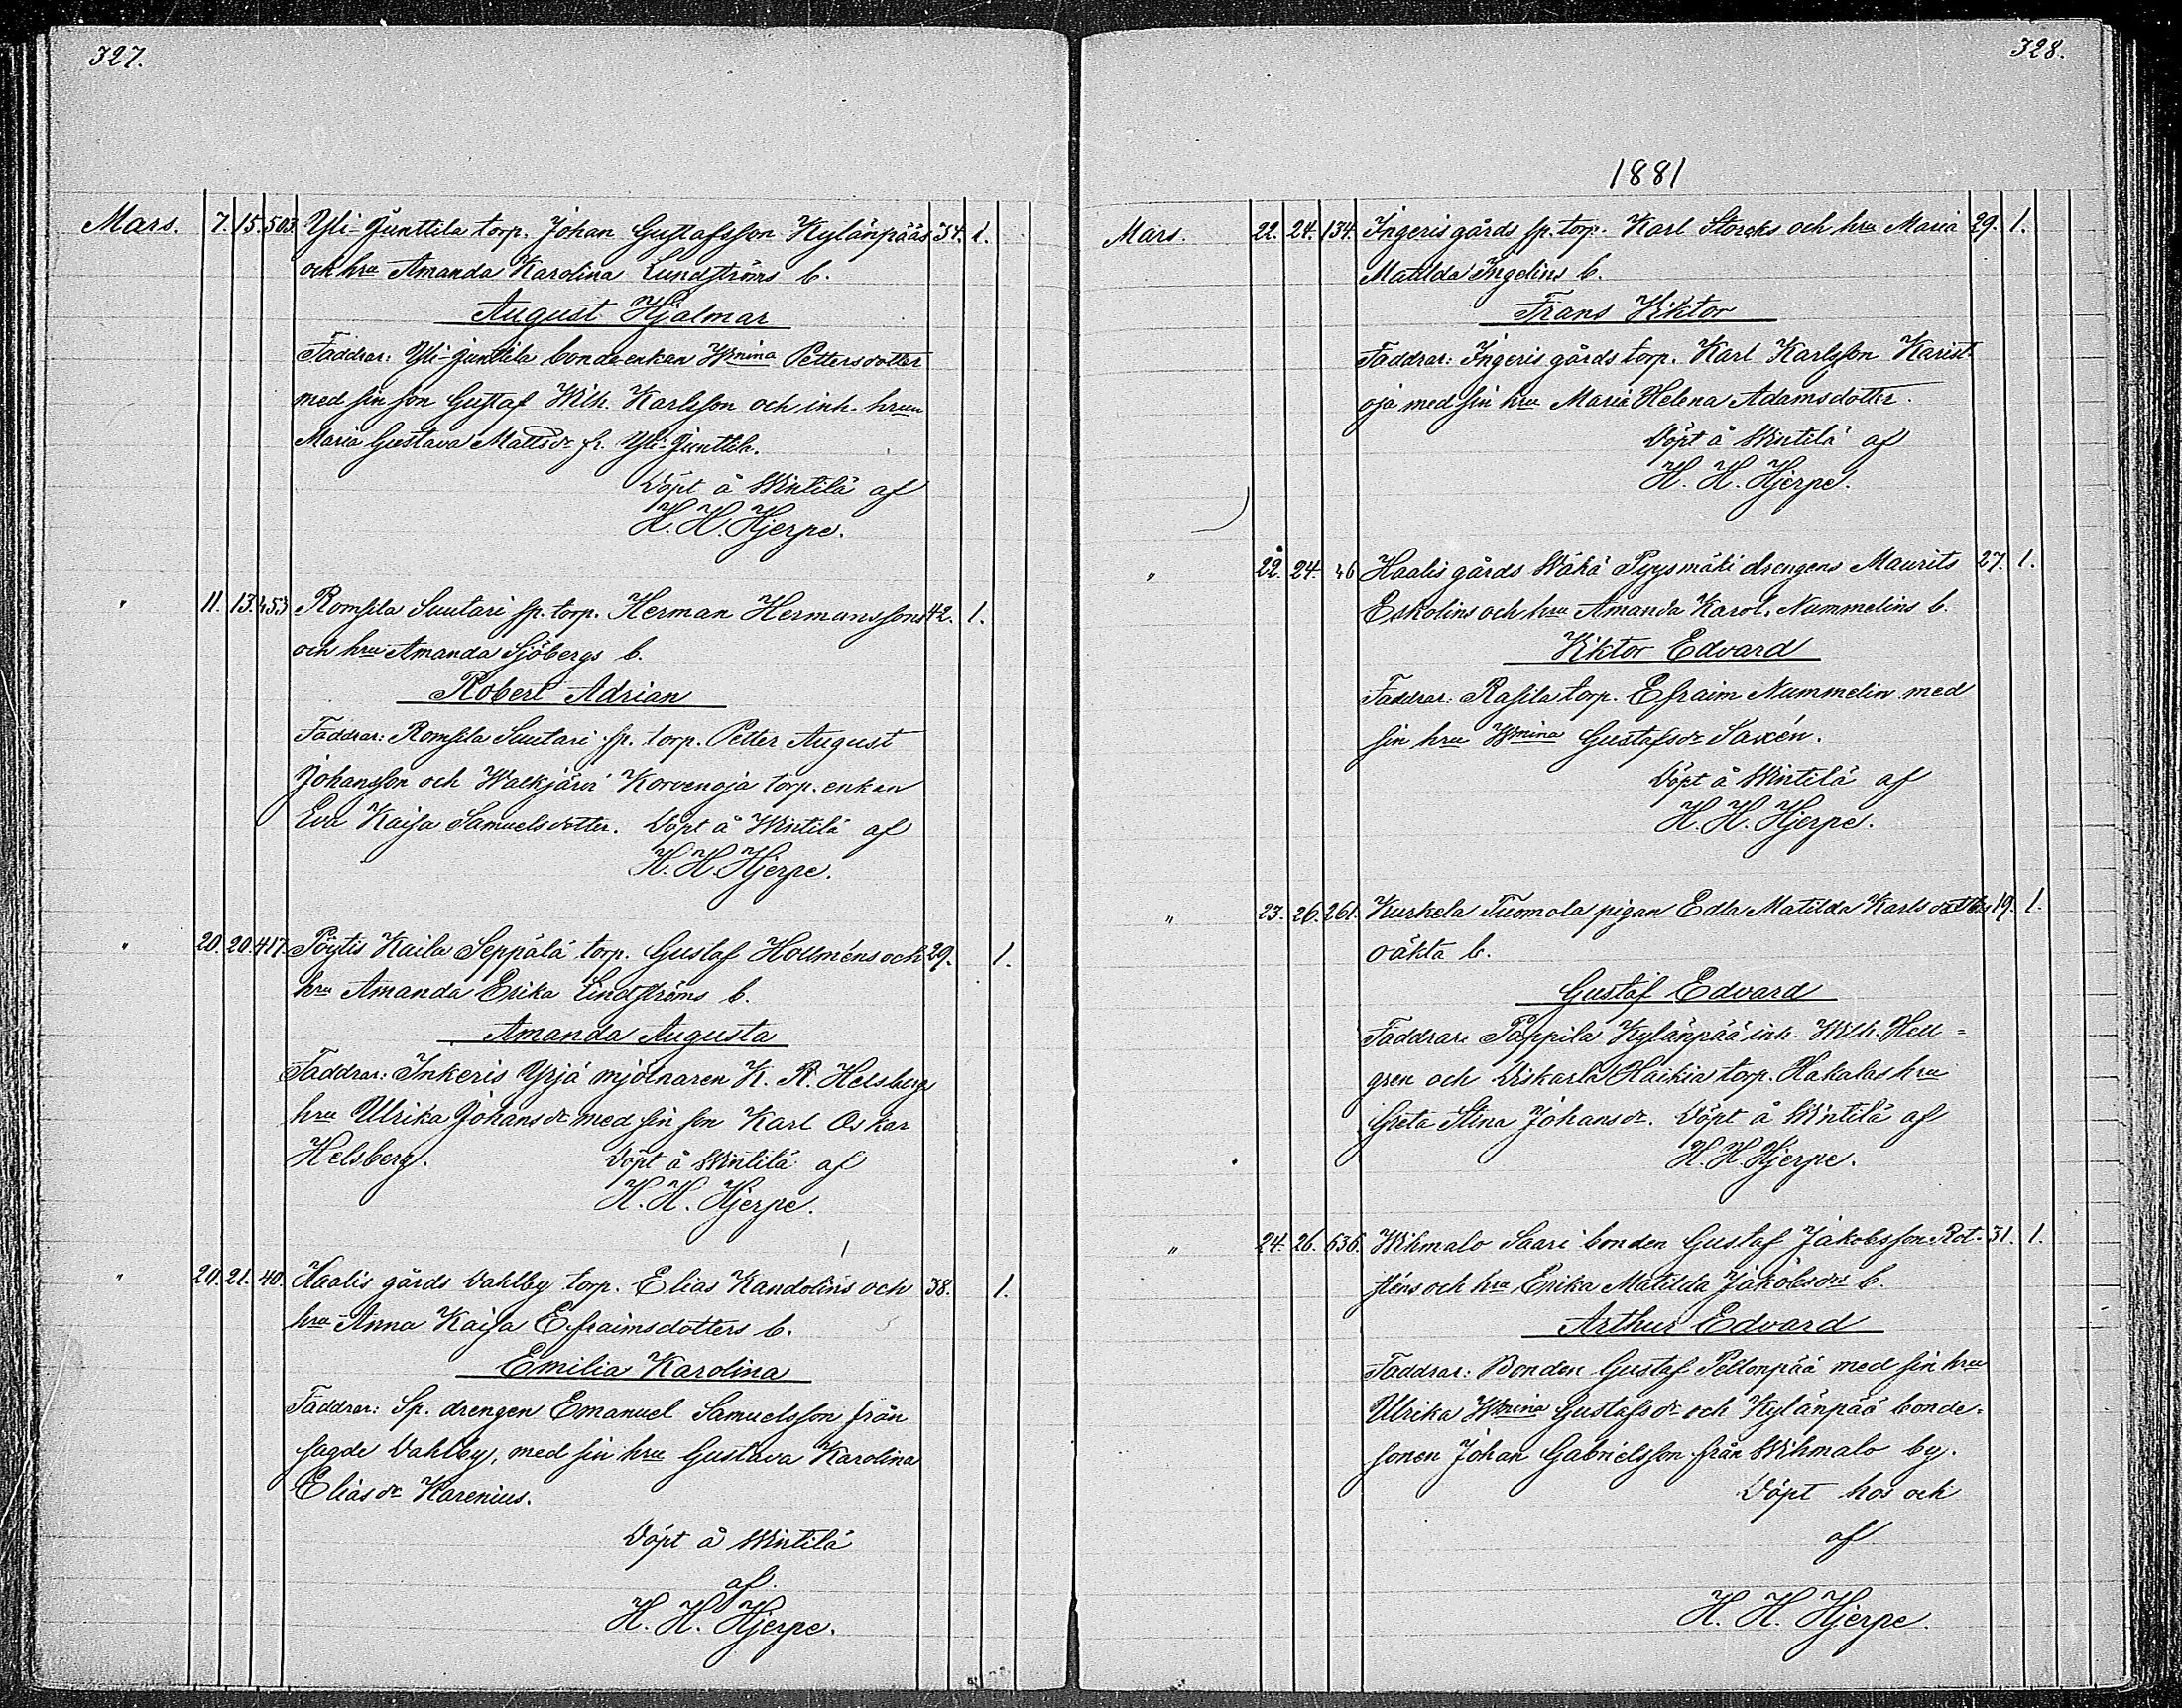 327.
Mars. 7. 15. 503. Yli-Junttila torp. Johan Gustafsson Kylänpääs 34. 1.
och hru Amanda Karolina Lundströms b.
August Hjalmar
Faddrar: Yli-Junttila bondeenkan Wmina Pettersdotter
med sin son Gustaf Wilh. Karlsson och inh. hrun
Maria Gustava Mattsdr fr. Yli-Junttila.
Döpt å Wintilä af
H. H. Hjerpe.
" 11. 13. 453 Romsila Suutari sp. torp. Herman Hermanssons 42. 1.
och hru Amanda Sjöbergs b.
Robert Adrian
Faddrar: Romsila Suutari sp. torp. Petter August
Johansson och Walkjärvi Korvenoja torp. enkan
Eva Kaisa Samuelsdotter. Döpt å Wintilä af
H. H. Hjerpe.
" 20. 20. 417. Pöytis Kaila Seppälä torp. Gustaf Hollméns och 29. 1.
hru Amanda Erika Lindströms b.
Amanda Augusta
Faddrar: Inkeris Yrjä mjölnaren K. R. Helsberg
hru Ulrika Johansdr med sin son Karl Oskar
Helsberg. Döpt å Wintilä af
H. H. Hjerpe.
" 20. 21. 40. Haalis gårds Dahlby torp. Elias Kandolins och 38. 1.
hru Anna Kaisa Efraimsdotters b.
Emilia Karolina
Faddrar: Sp. drengen Emanuel Samuelsson från
sagde Dahlby, med sin hru Gustava Karolina
Eliasdr Karenius.
Döpt å Wintilä
af
H. H. Hjerpe.
328.
1881
Mars. 22. 24. 134. Ingeris gårds sp. torp. Karl Storcks och hru Maria 29. 1.
Matilda Ingelins b.
Frans Viktor
Faddrar: Ingeris gårds torp. Karl Karlsson Karist
oja med sin hru Maria Helena Adamsdotter.
Döpt å Wintilä af
H. H. Hjerpe.
" 22. 24. 46 Haalis gårds Wähä Pyysmäki drengens Maurits 27. 1.
Eskolins och hru Amanda Karol. Nummelins b.
Viktor Edvard
Faddrar: Rasila torp. Efraim Nummelin med
sin hru Wmina Gustafsdr Saxén.
Döpt å Wintilä af
H. H. Hjerpe.
" 23. 26. 261. Kurkela Tuomola pigan Edla Matilda Karlsdotters 19. 1.
oäkta b.
Gustaf Edvard
Faddrar: Tappila Kylänpää inh. Wilh. Hell=
gren och Diskarla Haikia torp. Hakalas hru
Greta Stina Johansdr. Döpt å Wintilä af
H. H. Hjerpe.
" 24. 26. 636. Wihmalo Saari bonden Gustaf Jakobsson Rot- 31. 1.
sténs och hru Erika Matilda Jakobsdrs b.
Arthur Edvard
Faddrar: Bonden Gustaf Peltonpää med sin hru
Ulrika Wmina Gustafsdr och Kylänpää bonde-
sonen Johan Gabrielsson från Wihmalo by.
Döpt hos och
af
H. H. Hjerpe.